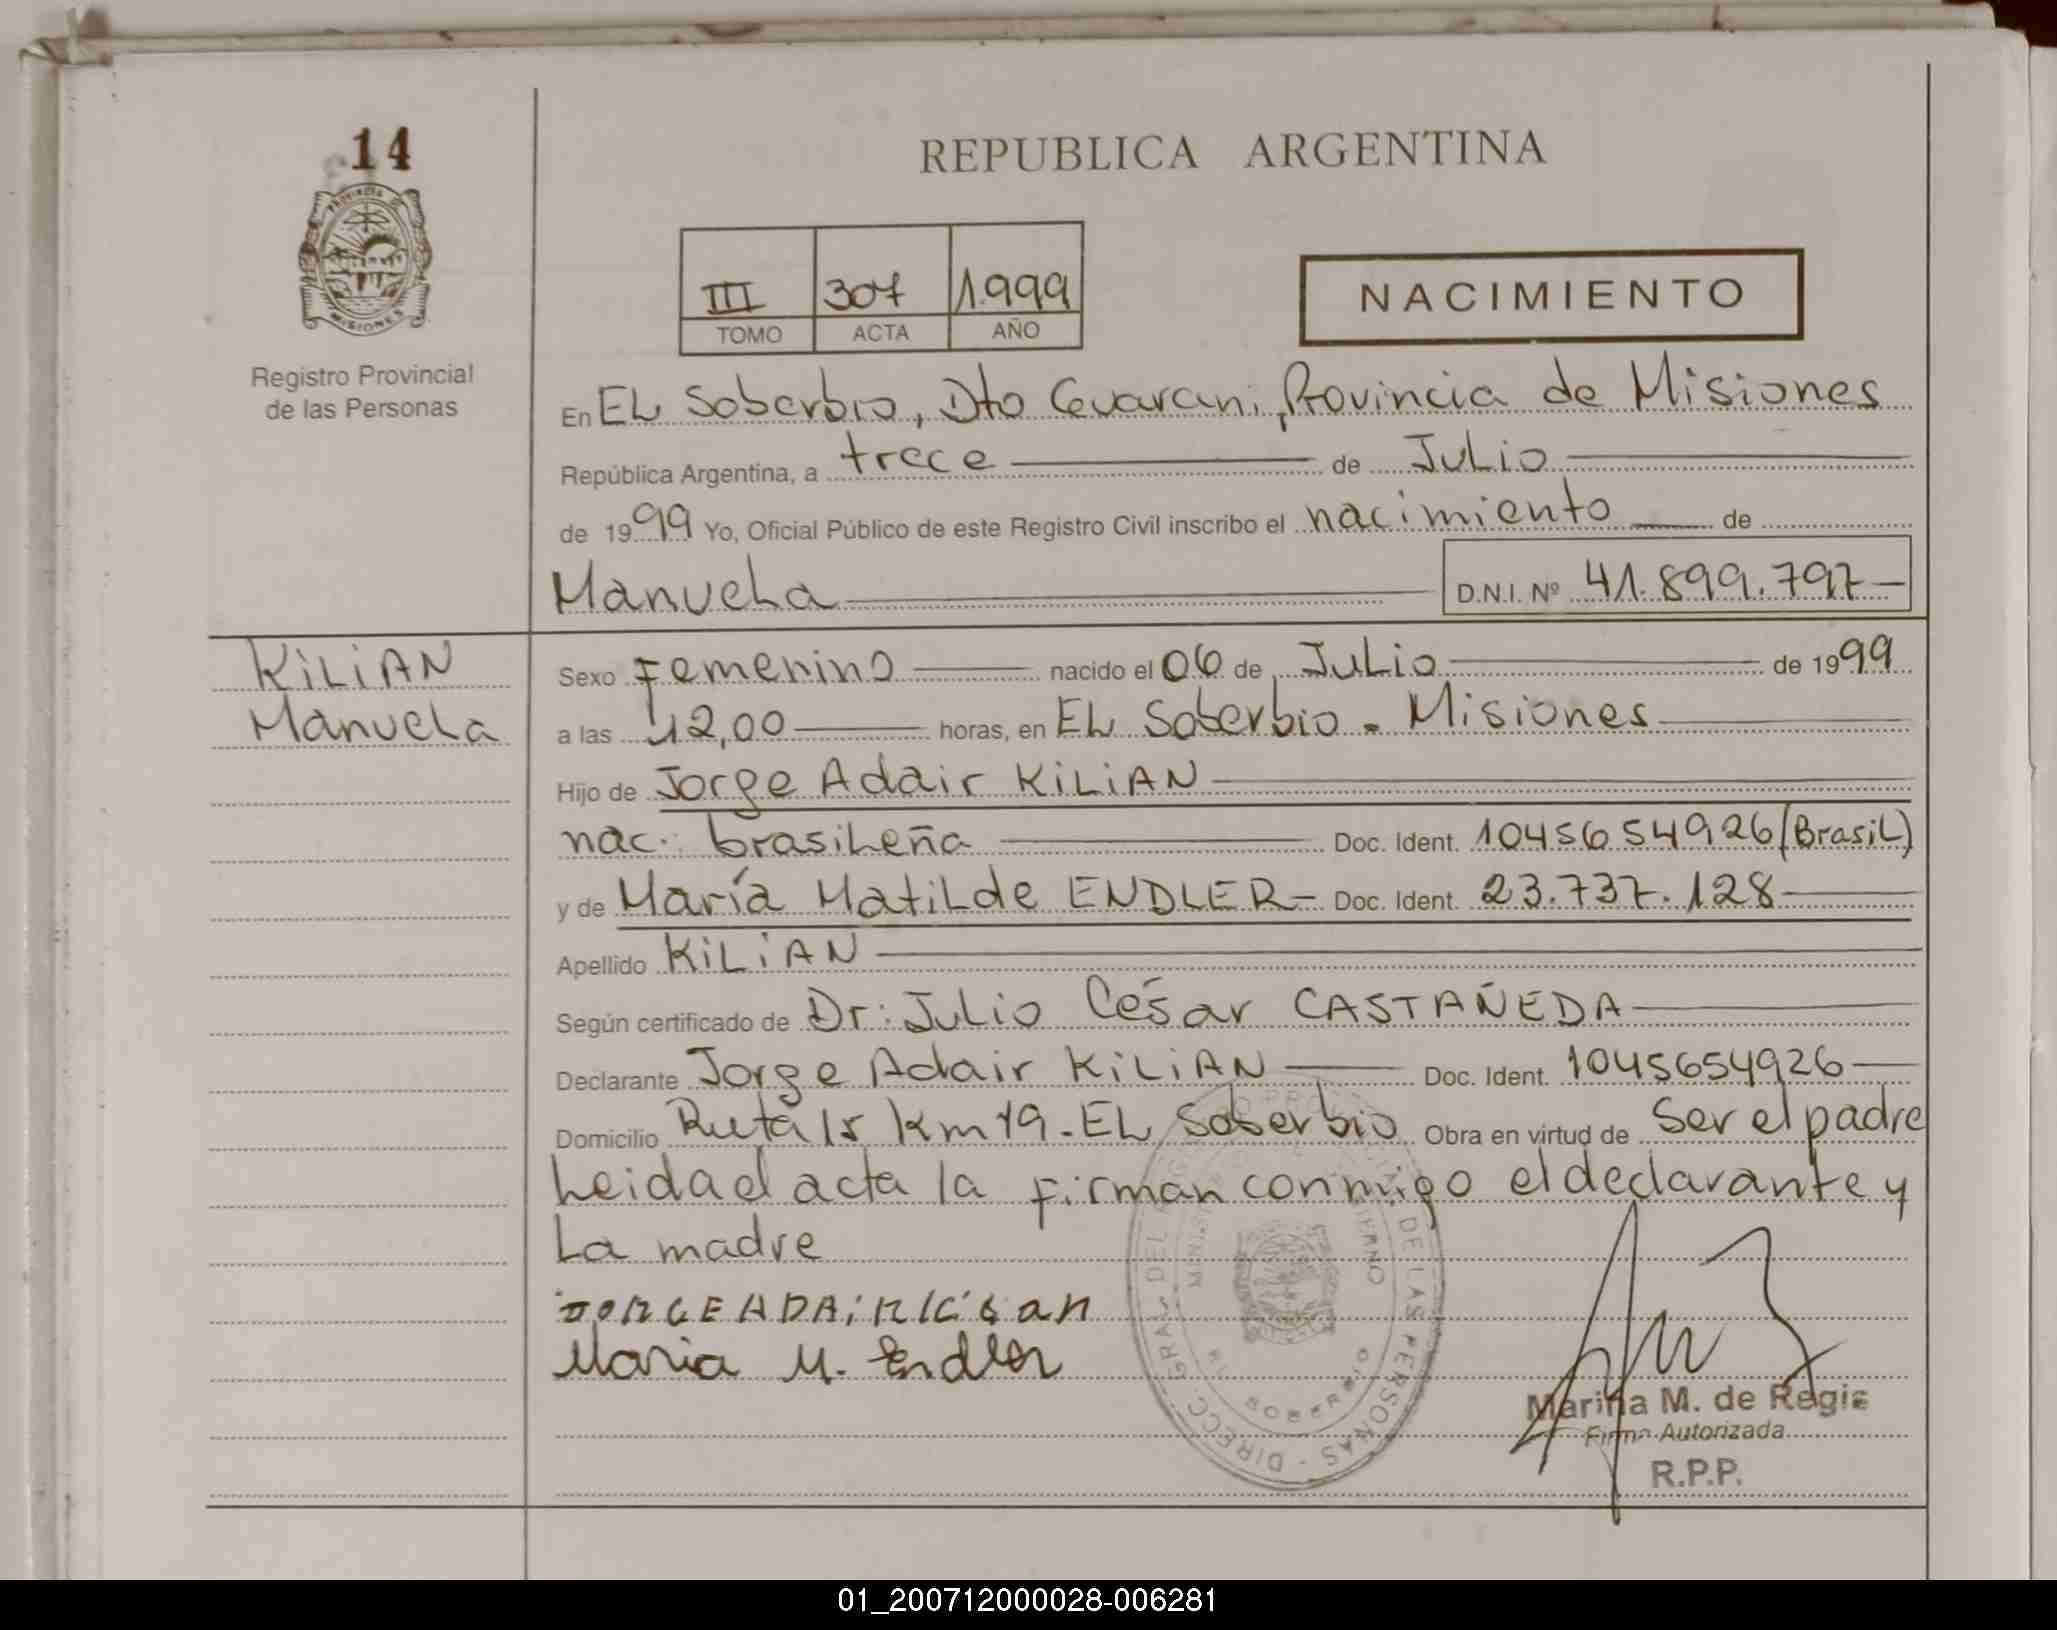 14
PROVINCIA DE
MISIONES
Registro Provincial
de las Personas
REPUBLICA ARGENTINA
III 307 1.999
TOMO ACTA AÑO
NACIMIENTO
En EL Soberbio, Dto Guarani, Provincia de Misiones
República Argentina, a trece de Julio
de 1999 Yo, Oficial Público de este Registro Civil inscribo el nacimiento de
Manuela D.N.I. Nº 41.899.797
KiLiAN
Manuela
Sexo Femenino nacido el 06 de Julio de 1999
a las 12,00 horas, en EL Soberbio - Misiones
Hijo de Jorge Adair KiLiAN
nac. brasileña Doc. Ident. 1045654926 (Brasil)
y de María Matilde ENDLER - Doc. Ident. 23.737.128
Apellido KiLiAN
Según certificado de Dr: Julio César CASTAÑEDA
Declarante Jorge Adair KiLiAN Doc. Ident. 1045654926
Domicilio Ruta 15 Km 19 - EL Soberbio Obra en virtud de Ser el padre
Leida el acta la firman conmigo el declarante y
La madre
Maria M. Endler
DIRECC. GRAL. DEL DE LAS PERSONAS
EL SOBERBIO
Marina M. de Regis
Firma Autorizada
R.P.P.
01_200712000028-006281